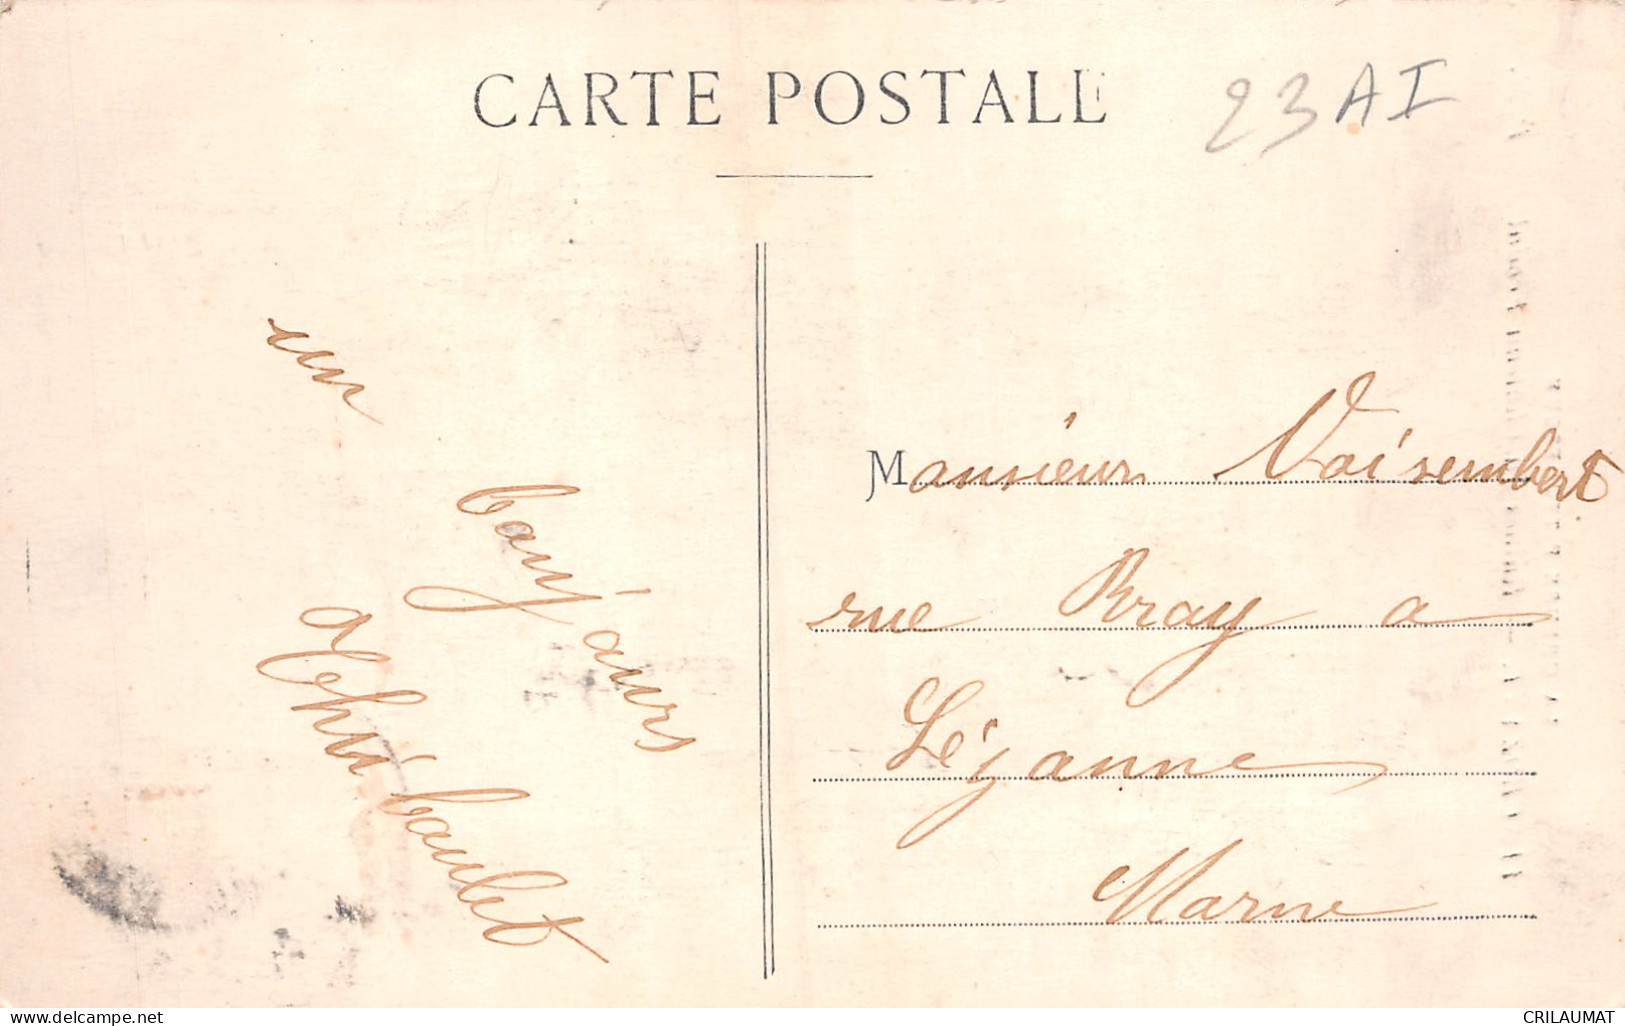 CARTE POSTALE
23 AI
un
bonj'ours
a thi'baulet
Monsieur Voisembert
rue Bray a
Sézanne
Marne
www.delcampe.net
CRILAUMAT